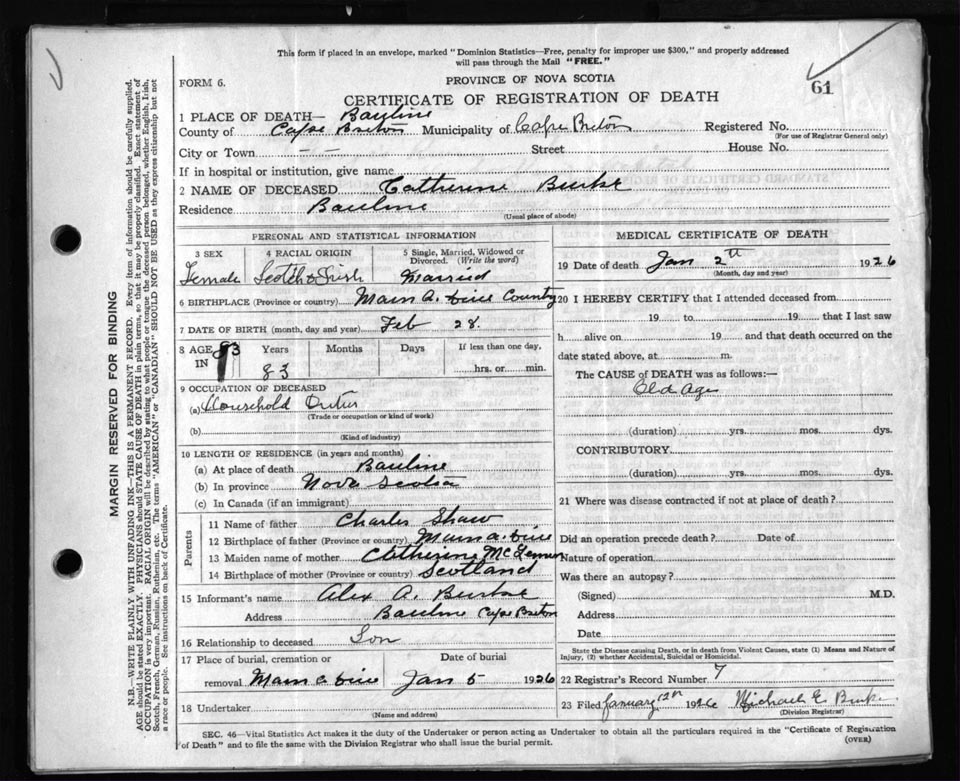 This form if placed in an envelope, marked "Dominion Statistics—Free, penalty for improper use $300," and properly addressed
will pass through the Mail "FREE."
FORM 6.
PROVINCE OF NOVA SCOTIA
61
CERTIFICATE OF REGISTRATION OF DEATH
1 PLACE OF DEATH— Bauline
County of Cape Breton Municipality of Cape Breton Registered No.
(For use of Registrar General only)
City or Town — — Street House No.
If in hospital or institution, give name
2 NAME OF DECEASED Catherine Burke
Residence Bauline
(Usual place of abode)
PERSONAL AND STATISTICAL INFORMATION
3 SEX 4 RACIAL ORIGIN 5 Single, Married, Widowed or
Divorced. (Write the word)
Female Scotch & Irish Married
6 BIRTHPLACE (Province or country) Main a. dieu County
7 DATE OF BIRTH (month, day and year) Feb 28.
8 AGE 83 Years Months Days If less than one day,
IN 83 hrs. or min.
9 OCCUPATION OF DECEASED
(a) Household Duties
(Trade or occupation or kind of work)
(b)
(Kind of industry)
10 LENGTH OF RESIDENCE (in years and months)
(a) At place of death Bauline
(b) In province Nova Scotia
(c) In Canada (if an immigrant)
Parents
11 Name of father Charles Shaw
12 Birthplace of father (Province or country) Main a. dieu
13 Maiden name of mother
14 Birthplace of mother (Province or country) Scotland
15 Informant's name Alex A. Burke
Address Bauline Cape Breton
16 Relationship to deceased Son
17 Place of burial, cremation or Date of burial
removal Main a dieu Jan 5 1926
18 Undertaker
(Name and address)
MEDICAL CERTIFICATE OF DEATH
19 Date of death Jan 2th 1926
(Month, day and year)
20 I HEREBY CERTIFY that I attended deceased from
19 to 19 that I last saw
h alive on 19 and that death occurred on the
date stated above, at m.
The CAUSE of DEATH was as follows:—
Old Age
(duration) yrs. mos. dys.
CONTRIBUTORY.
(duration) yrs. mos. dys.
21 Where was disease contracted if not at place of death?
Did an operation precede death? Date of
Nature of operation
Was there an autopsy?
(Signed) M.D.
Address
Date
State the Disease causing Death, or in death from Violent Causes, state (1) Means and Nature of
Injury, (2) whether Accidental, Suicidal or Homicidal.
22 Registrar's Record Number 7
23 Filed January 12th 1926 Michael E. Burke
(Division Registrar)
SEC. 46—Vital Statistics Act makes it the duty of the Undertaker or person acting as Undertaker to obtain all the particulars required in the "Certificate of Registration
of Death" and to file the same with the Division Registrar who shall issue the burial permit.
(OVER)
MARGIN RESERVED FOR BINDING
N.B.—WRITE PLAINLY WITH UNFADING INK—THIS IS A PERMANENT RECORD. Every item of information should be carefully supplied.
AGE should be stated EXACTLY. PHYSICIANS should STATE CAUSE OF DEATH in plain terms, so that it may be properly classified. Exact statement of
OCCUPATION is very important. RACIAL ORIGIN will be described by stating to what people or tongue the deceased person belonged, whether English, Irish,
Scotch, French, German, Russian, Ruthenian, etc. The terms "AMERICAN" or "CANADIAN" SHOULD NOT BE USED as they express citizenship but not
a race or people. See instructions on back of Certificate.